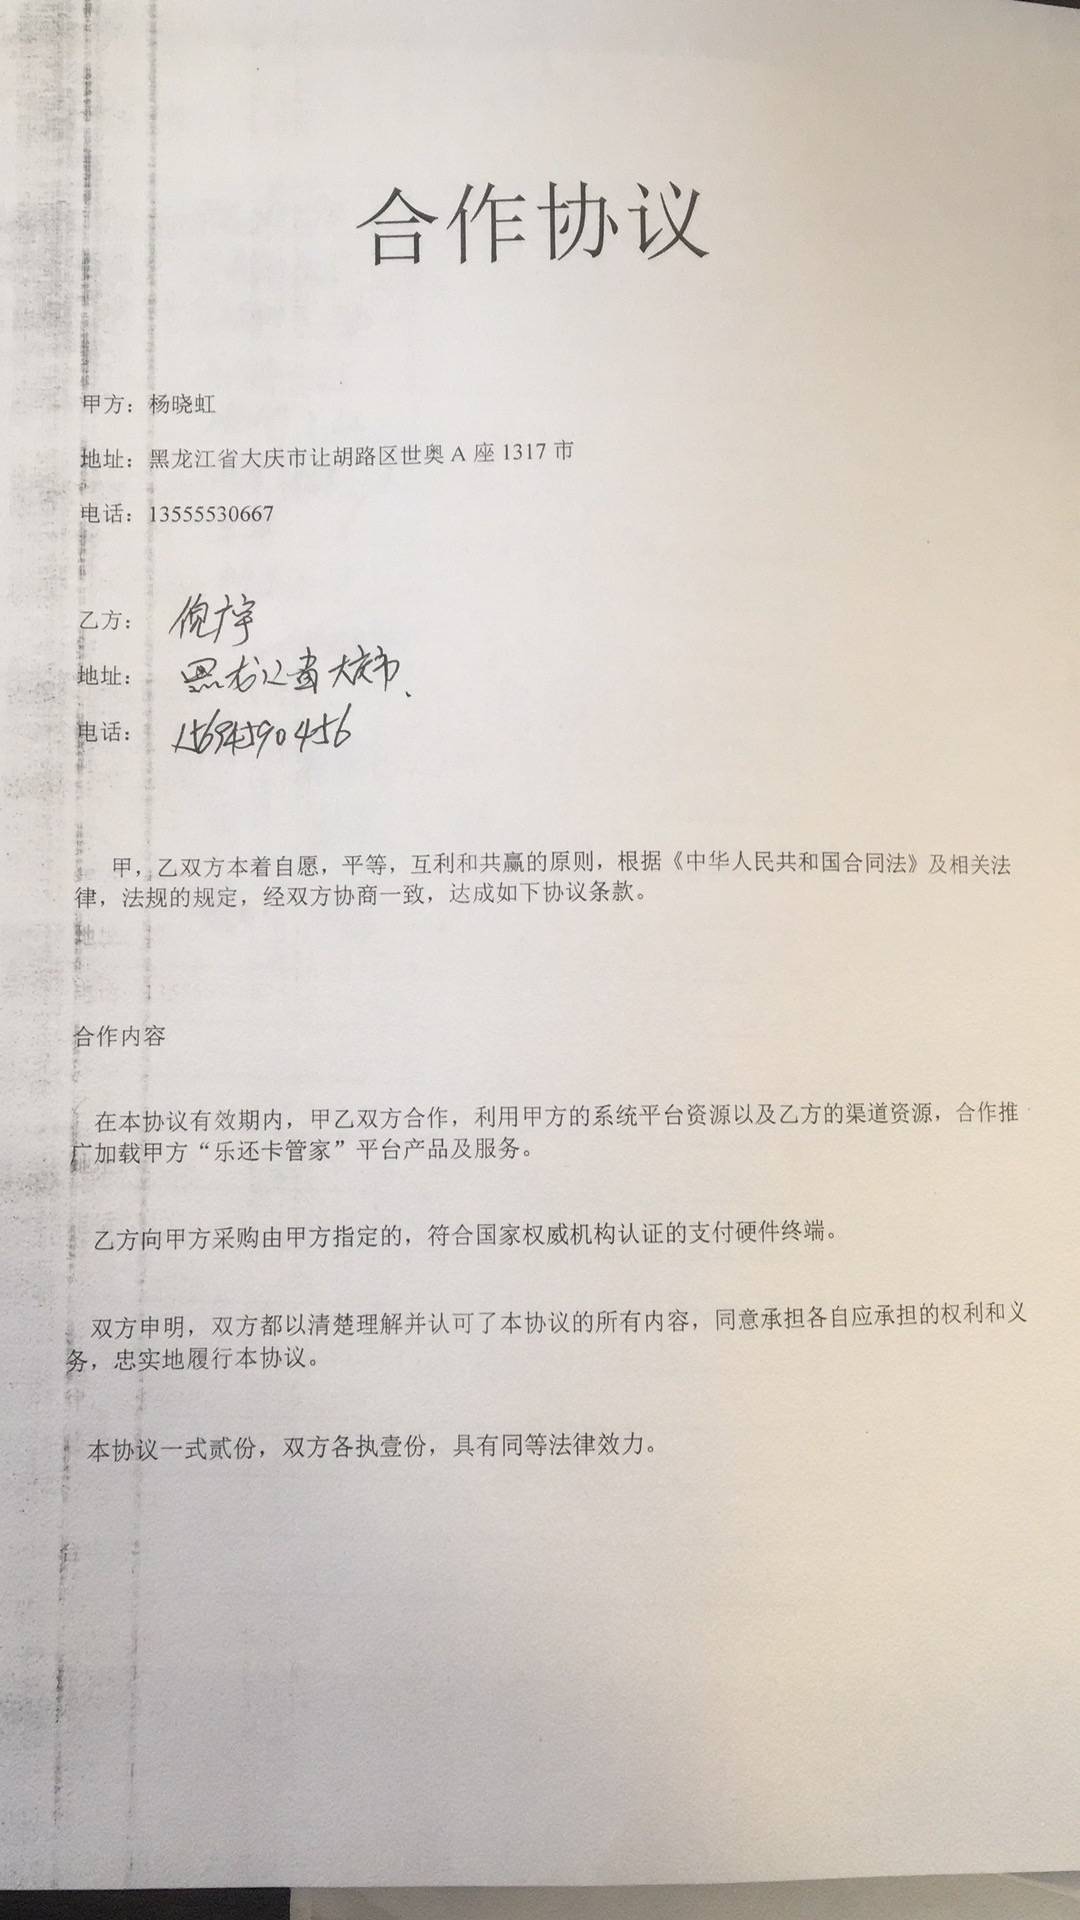 合作协议
甲方：杨晓虹
地址：黑龙江省大庆市让胡路区世奥 A 座 1317 市
电话：13555530667
乙方：倪宇
地址：黑龙江省大庆市、
电话：
甲，乙双方本着自愿，平等，互利和共赢的原则，根据《中华人民共和国合同法》及相关法
律，法规的规定，经双方协商一致，达成如下协议条款。
合作内容
在本协议有效期内，甲乙双方合作，利用甲方的系统平台资源以及乙方的渠道资源，合作推
广加载甲方“乐还卡管家”平台产品及服务。
乙方向甲方采购由甲方指定的，符合国家权威机构认证的支付硬件终端。
双方申明，双方都以清楚理解并认可了本协议的所有内容，同意承担各自应承担的权利和义
务，忠实地履行本协议。
本协议一式贰份，双方各执壹份，具有同等法律效力。